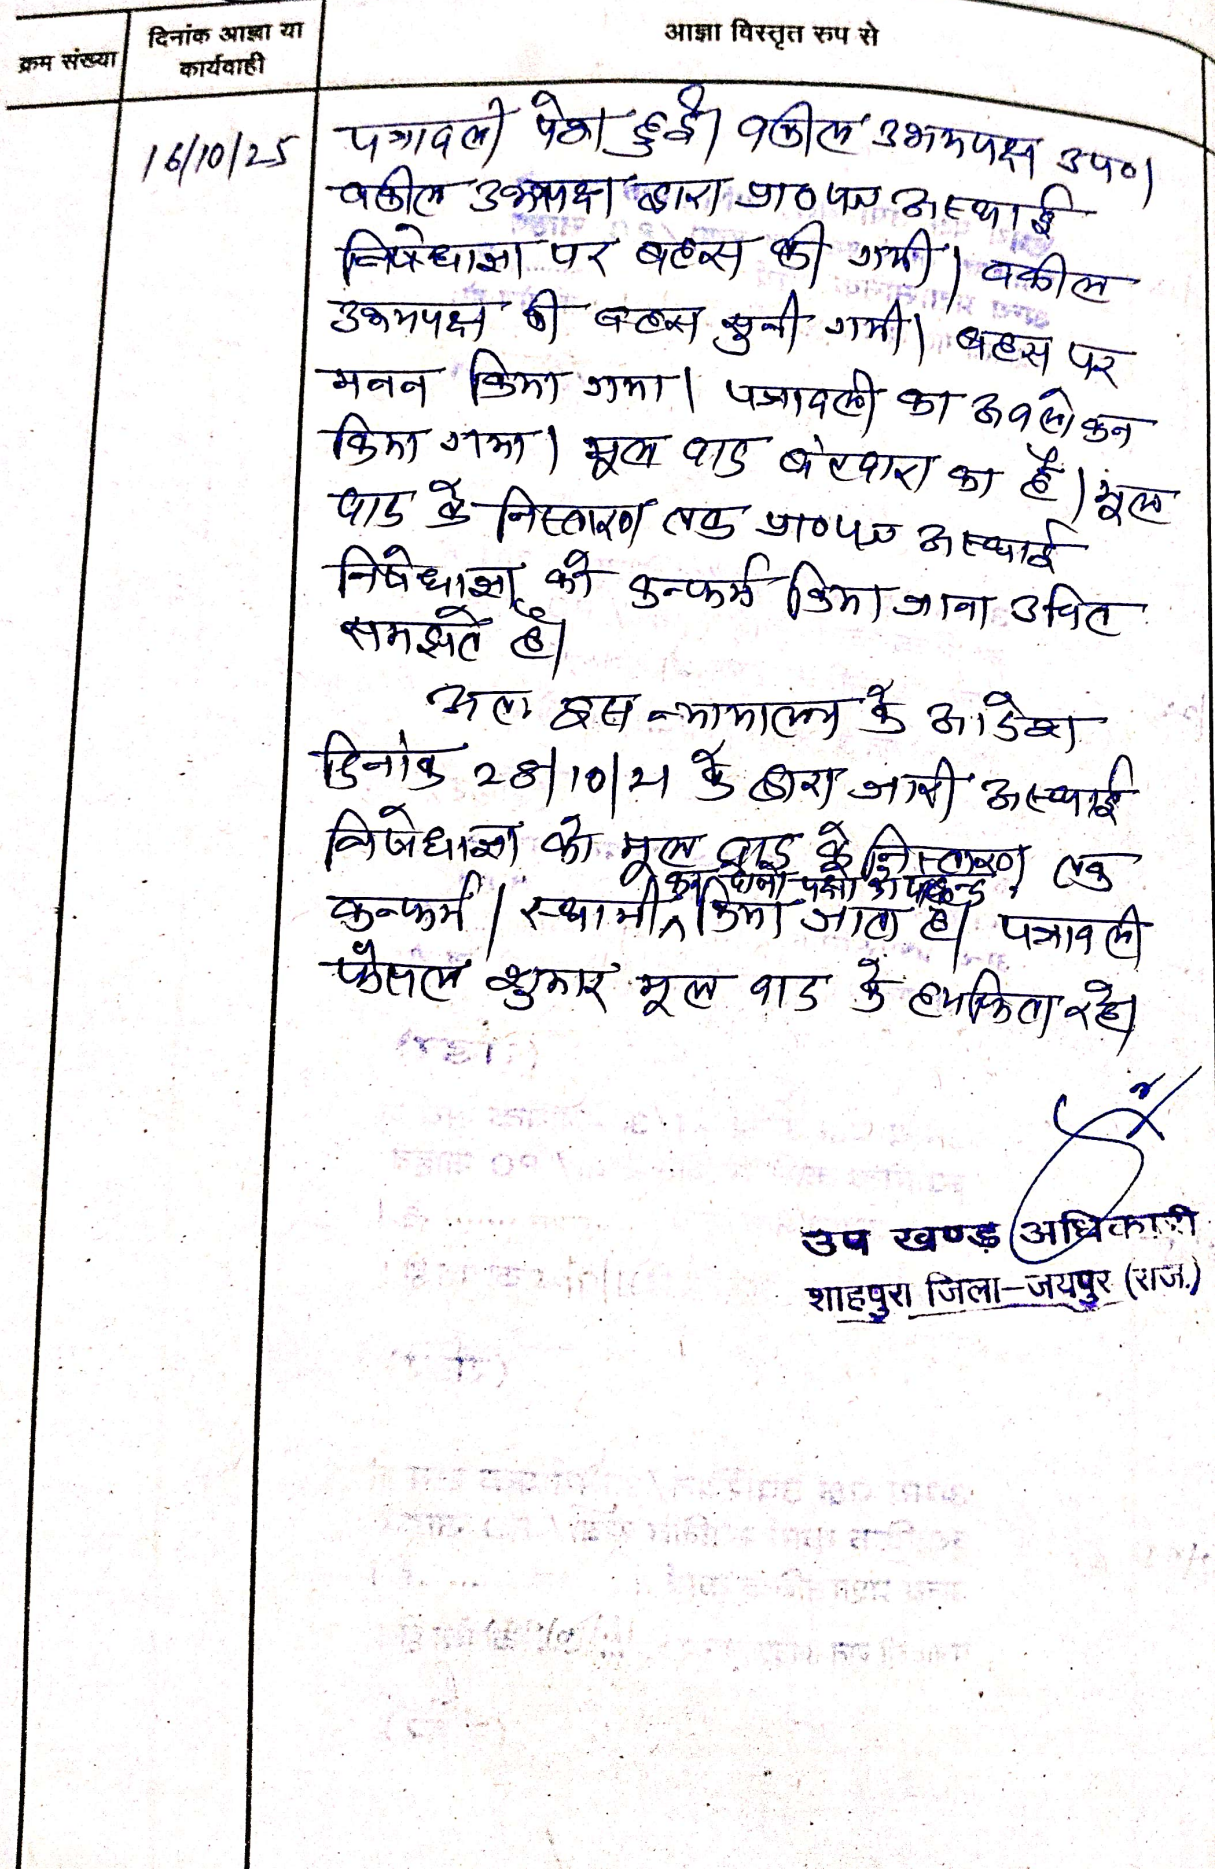 क्रम संख्या
दिनांक आज्ञा या
कार्यवाही
आज्ञा विस्तृत रुप से
16/10/25
पत्रावली पेश हुई। वकील उभयपक्ष उप०।
वकील उभयपक्ष द्वारा प्रा०पत्र अस्थाई
निषेधाज्ञा पर बहस की गयी। वकील
उभयपक्ष की बहस सुनी गयी। बहस पर
मनन किया गया। पत्रावली का अवलोकन
किया गया। मूल वाद बंटवारा का है। मूल
वाद के निस्तारण तक प्रा०पत्र अस्थाई
निषेधाज्ञा को कन्फर्म किया जाना उचित
समझते है।
अतः इस न्यायालय के आदेश
दिनांक 28/10/21 के द्वारा जारी अस्थाई
निषेधाज्ञा को मूल वाद के निस्तारण तक
पक्षो
कन्फर्म / स्थायी किया जाता है। पत्रावली
फैसल शुमार मूल वाद के हमफिता रहे।
उप खण्ड अधिकारी
शाहपुरा जिला-जयपुर (राज.)